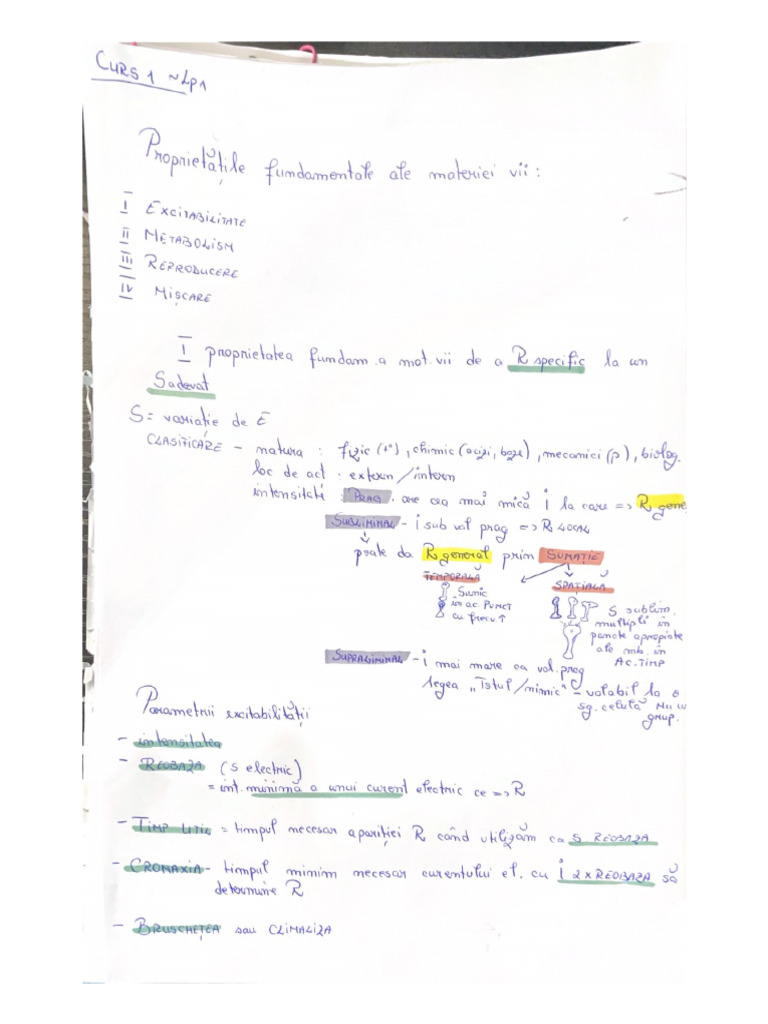 CURS 1 ~ Lp1
Proprietățile fundamentale ale materiei vii:
I EXCITABILITATE
II METABOLISM
III REPRODUCERE
IV MIȘCARE
I proprietatea fundam. a mat. vii de a R specific la un
S adevat
S = variație de E
CLASIFICARE - natura : fizic (t°), chimic (acizi, baze), mecanici (p), biolog.
loc de act : extern/intern
intensitate : PRAG. are cea mai mică i la care => R gene
SUBLIMINAL - i sub val prag => R LOCAL
poate da R general prin SUMAȚIE
TEMPORALĂ SPAȚIALĂ
S unic
în ac. PUNCT
cu frecv ↑
S sublim.
multipli în
puncte apropiate
ale mb. în
AC. TIMP
SUPRALIMINAL - i mai mare ca val. prag
legea „Totul/nimic" - valabil la o
sg. celulă NU la
grup.
Parametrii excitabilității
- intensitatea
- REOBAZA (S electric)
= int. minimă a unui curent electric ce => R
- TIMP UTIL = timpul necesar apariției R când utilizăm ca S REOBAZA
- CRONAXIA - timpul minim necesar curentului el. cu i 2 x REOBAZA să
determine R
- BRUSCHEȚEA sau CLIMALIZA